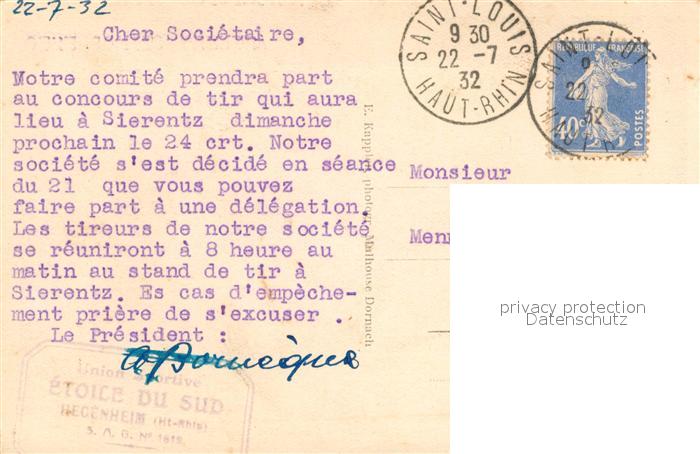 22-7-32
Cher Sociétaire,
Notre comité prendra part
au concours de tir qui aura
lieu à Sierentz dimanche
prochain le 24 crt. Notre
société s'est décidé en séance
du 21 que vous pouvez
faire part à une délégation.
Les tireurs de notre société
se réuniront à 8 heure au
matin au stand de tir à
Sierentz. Es cas d'empèche-
ment prière de s'excuser .
Le Président :
Union Sportive
ÉTOILE DU SUD
HEGENHEIM (Ht-Rhin)
S. A. G. Nº 1619
E. Kuppler, photogr. Mulhouse Dornach
SAINT-LOUIS
9 30
22 -7
32
HAUT-RHIN
REPUBLIQUE FRANÇAISE
40c
POSTES
SAINT-LOUIS
9
22
32
Monsieur
Menn
privacy protection
Datenschutz